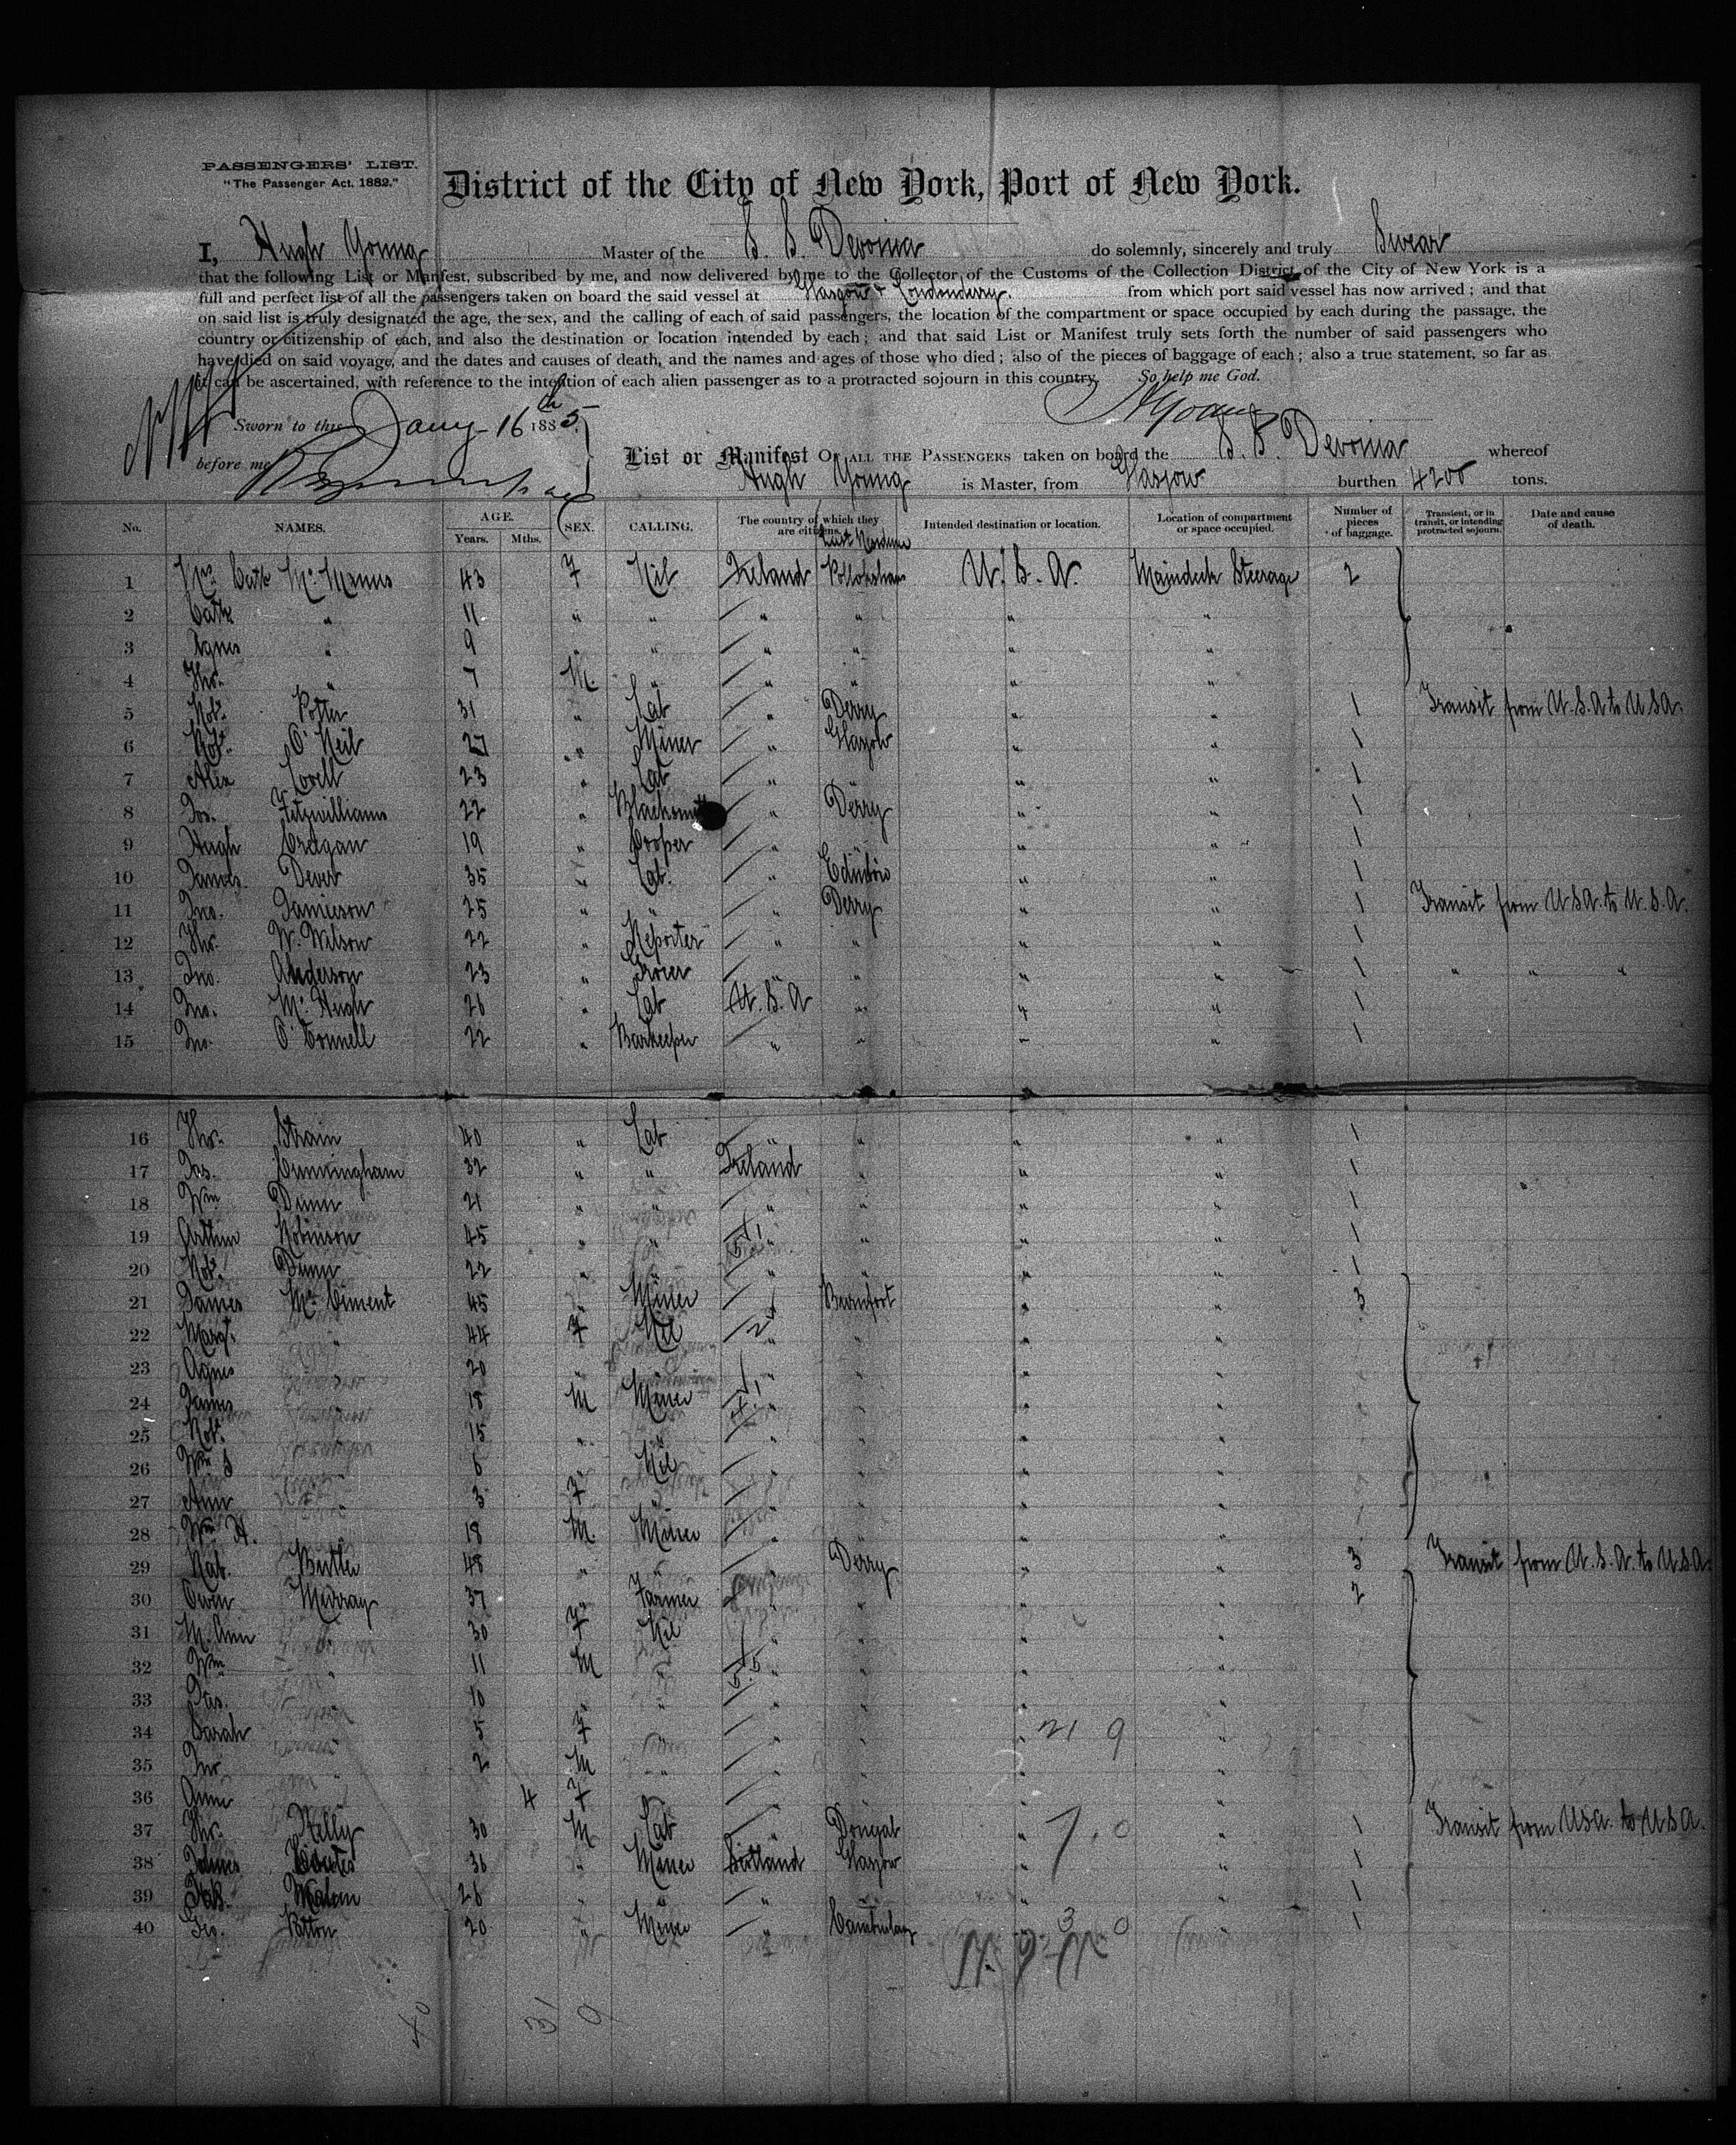 PASSENGERS' LIST.
"The Passenger Act, 1882."
District of the City of New York, Port of New York.
I, Hugh Young Master of the S. S. Devonia do solemnly, sincerely and truly Swear
that the following List or Manifest, subscribed by me, and now delivered by me to the Collector of the Customs of the Collection District of the City of New York is a
full and perfect list of all the passengers taken on board the said vessel at Glasgow & Londonderry. from which port said vessel has now arrived; and that
on said list is truly designated the age, the sex, and the calling of each of said passengers, the location of the compartment or space occupied by each during the passage, the
country or citizenship of each, and also the destination or location intended by each; and that said List or Manifest truly sets forth the number of said passengers who
have died on said voyage, and the dates and causes of death, and the names and ages of those who died; also of the pieces of baggage of each; also a true statement, so far as
it can be ascertained, with reference to the intention of each alien passenger as to a protracted sojourn in this country. So help me God.
HYoung
Sworn to this Jany 16th 1885.
before me
List or Manifest OF ALL THE PASSENGERS taken on board the S. S. Devonia whereof
Hugh Young is Master, from Glasgow burthen 4200 tons.
No. NAMES. AGE. Years. Mths. SEX. CALLING. The country of which they are citizens. Last Residence Intended destination or location. Location of compartment or space occupied. Number of pieces of baggage. Transient, or in transit, or intending protracted sojourn. Date and cause of death.
1 Mrs Cath McManus 43 F Nil Ireland Pollokshaws U. S. A. Maindeck Steerage 2
2 Cath " 11 " " " " " "
3 Agnes " 9 " " " " " "
4 Thos. " 7 M. " " " " "
5 Robt. Potter 31 " Lab " Derry " " 1 Transit from U.S.A to USA.
6 Robt. O'Neil 27 " Miner " Glasgow " " 1
7 Alex Lovell 23 " Lab " " " " 1
8 Jos. Fitzwilliams 22 " Blacksmith " Derry " " 1
9 Hugh Cregan 19 " Cooper " " " " 1
10 James Dever 35 " Lab. " Edinbro " " 1
11 Jno. Jamieson 25 " " " Derry " " 1 Transit from USA. to U.S.A.
12 Thos. W. Wilson 22 " Reporter " " " " 1
13 Jno. Anderson 23 " Grocer " " " " 1 " " "
14 Jno. McHugh 26 " Lab U.S.A " " " 1
15 Jno. O'Connell 22 " Barkeeper " " " " 1
16 Thos. Strain 40 " Lab " " " " 1
17 Jas. Cunningham 32 " " Ireland " " " 1
18 Wm Dunn 21 " " " " " " 1
19 Arthur Robinson 45 " " " " " " 1
20 Robt. Dunn 22 " " " " " " 1
21 James McCiment 45 " Miner " " " 3
22 Margt. " 44 F Nil " " " "
23 Agnes " 20 " " " " " "
24 James " 18 M Miner " " " "
25 Robt. " 15 " " " " " "
26 Wm J " 6 " Nil " " " "
27 Ann " 3 F " " " " "
28 Wm H. 18 M. Miner " " " "
29 Robt. 48 " " " Derry " " 3 Transit from U.S.A. to USA.
30 Owen Murray 37 " Farmer " " " " 2
31 M. Ann 30 F Nil " " " "
32 Wm " 11 M " " " " "
33 Jas. " 10 " " " " " "
34 Sarah " 5 F " " " " "
35 Jno " 2 M " " " " "
36 Anne 4 F " " " " "
37 Thos. Kelly 30 M Lab " Donegal " " 1 Transit from USA. to USA.
38 James 36 " Miner Scotland Glasgow " " 1
39 26 " " " " " " 1
40 Geo. Potton 20 " Miner " Cambuslang " " 1
21 9
7.0
3 0
40
31
9